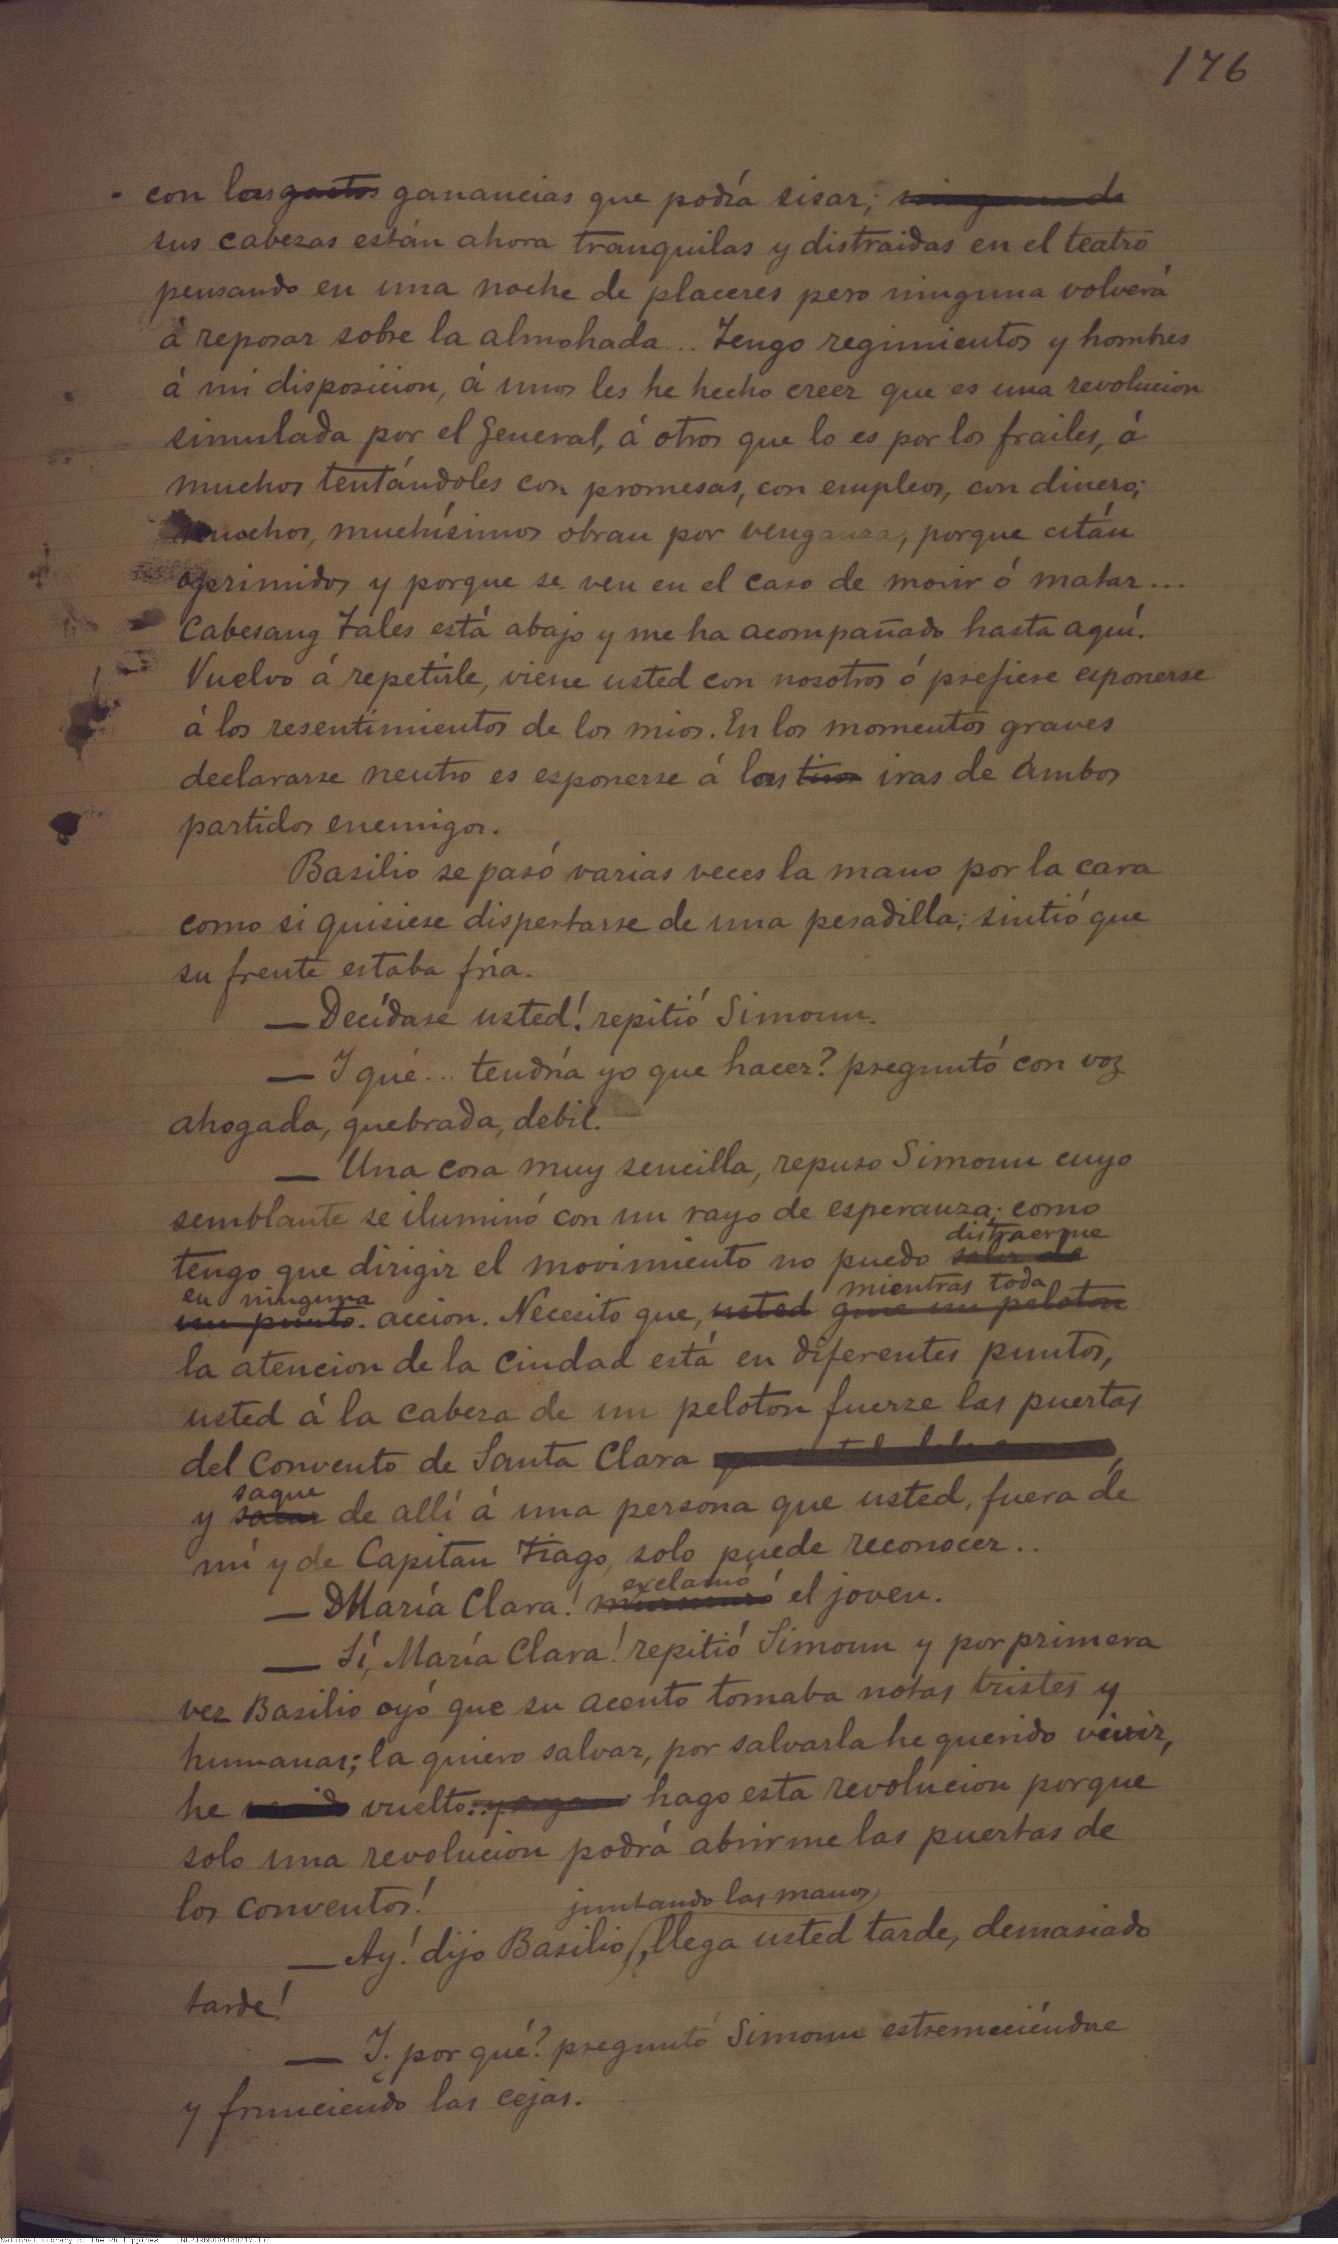 176
con las gastos ganancias que podría sisar; ninguna de
sus cabezas están ahora tranquilas y distraidas en el teatro
pensando en una noche de placeres pero ninguna volverá
á reposar sobre la almohada... Tengo regimientos y hombres
á mi disposicion, á unos les he hecho creer que es una revolucion
simulada por el General, á otros que lo es por los frailes, á
muchos tentándoles con promesas, con empleos, con dinero;
muchos, muchísimos obran por venganza, porque están
oprimidos y porque se ven en el caso de morir ó matar...
Cabesang Tales está abajo y me ha acompañado hasta aquí.
Vuelvo á repetirle, viene usted con nosotros ó prefiere esponerse
á los resentimientos de los mios. En los momentos graves
declararse neutro es esponerse á las tiros iras de ambos
partidos enemigos.
Basilio se pasó varias veces la mano por la cara
como si quisiese dispertarse de una pesadilla; sintió que
su frente estaba fría.
— Decídase usted! repitió Simoun.
— Y qué... tendría yo que hacer? preguntó con voz
ahogada, quebrada, debil.
— Una cosa muy sencilla, repuso Simoun cuyo
semblante se iluminó con un rayo de esperanza; como
distraerme
tengo que dirigir el movimiento no puedo salir de
en ninguna mientras toda
un punto. accion. Necesito que, usted guie un peloton
la atencion de la ciudad está en diferentes puntos,
usted á la cabeza de un peloton fuerze las puertas
del Convento de Santa Clara
saque
y sacar de allí á una persona que usted, fuera de
mí y de Capitan Tiago, solo puede reconocer..
exclamó
— María Clara! murmuró el joven.
— Sí, María Clara! repitió Simoun y por primera
vez Basilio oyó que su acento tomaba notas tristes y
humanas; la quiero salvar, por salvarla he querido vivir,
he venido vuelto.. hago esta revolucion porque
solo una revolucion podrá abrirme las puertas de
los conventos!
juntando las manos
— Ay! dijo Basilio, llega usted tarde, demasiado
tarde!
— Y ¿por qué? preguntó Simoun estremeciéndose
y frunciendo las cejas.